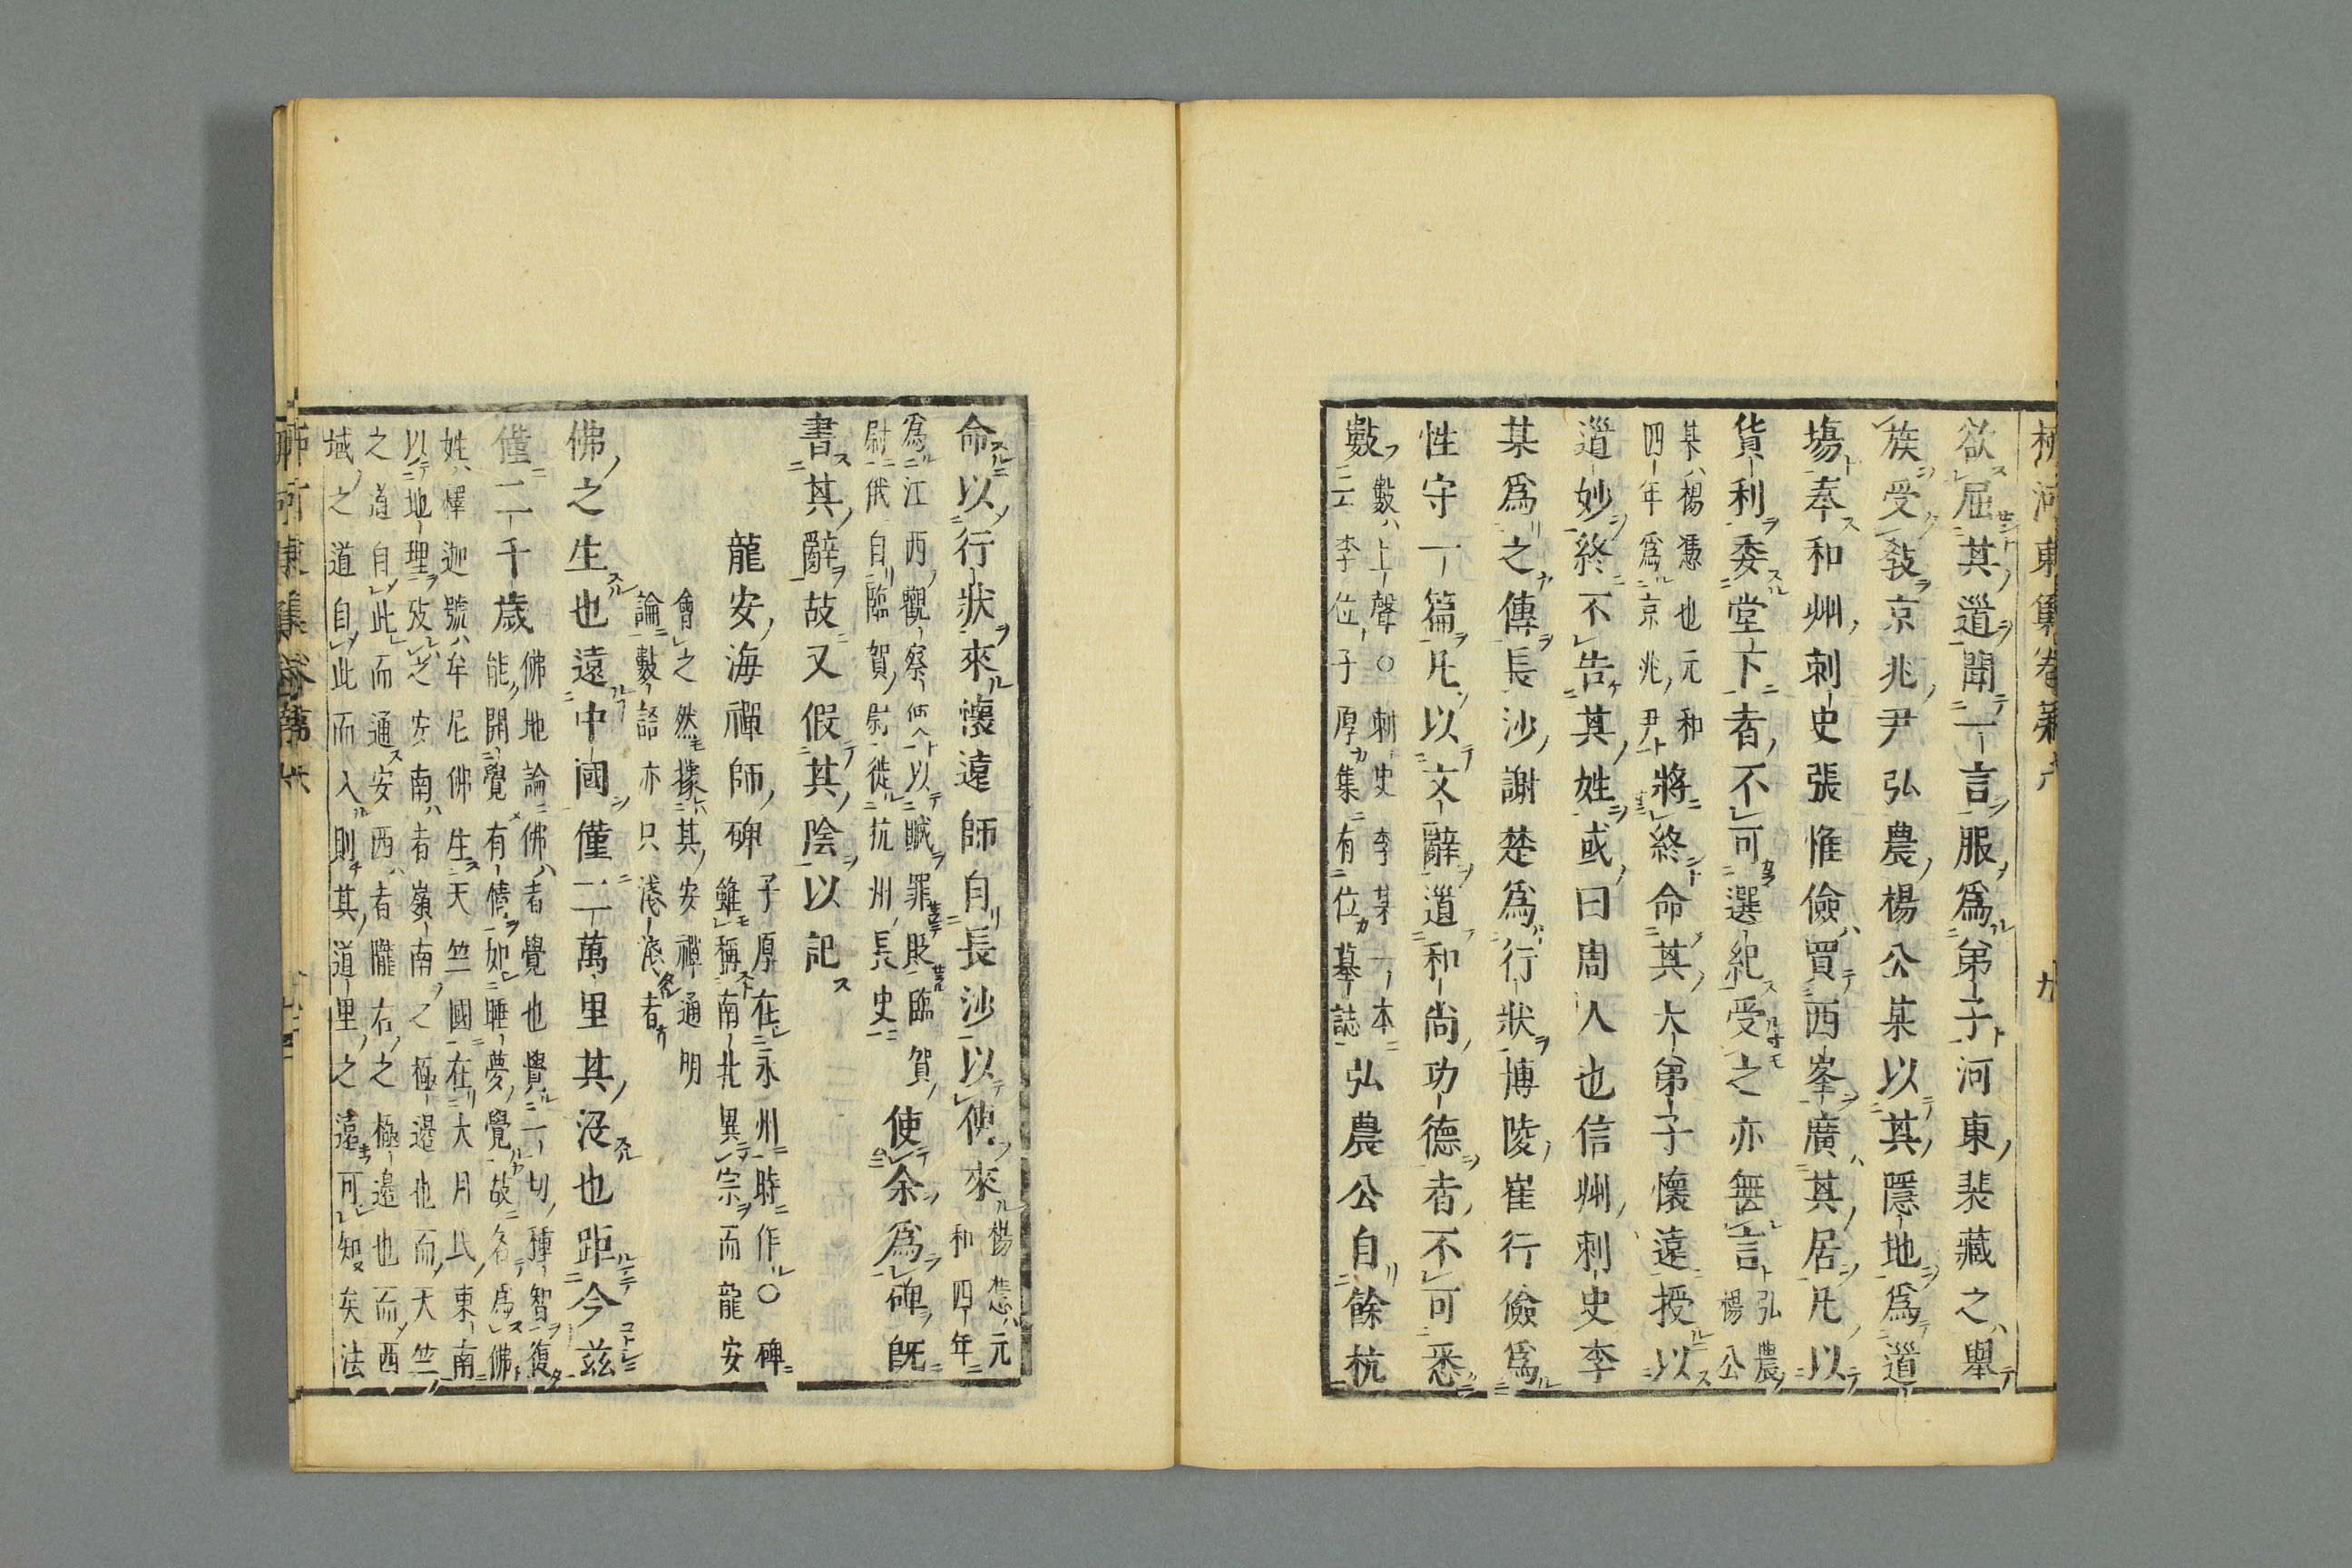 柳河東集卷第六
欲屈其道聞一言服爲弟子河東裴藏之舉
族受敎京兆尹弘農楊公某以其隱地爲道
塲奉和州刺史張惟儉買西峯廣其居凡以
貨利委堂下者不可選紀受之亦無言弘農
楊公
某楊憑也元和
四年爲京兆尹將終命其大弟子懷遠授以
道妙終不告其姓或曰周人也信州刺史李
某爲之傳長沙謝楚爲行狀博陵崔行儉爲
性守一篇凡以文辭道和尚功德者不可悉
數數上聲○刺史李某一本
云李位子厚集有位墓誌弘農公自餘杭
命以行狀來懷遠師自長沙以使來楊憑元
和四年
爲江西觀察使以贓罪貶臨賀
尉俄自臨賀尉徙杭州長史使余爲碑旣
書其辭故又假其陰以記
龍安海禪師碑子厚在永州時作○碑
雖稱南北異宗而龍安
會之然據其安禪通明
論數語亦只淺淺者
佛之生也遠中國僅二萬里其沒也距今茲
僅二千歲佛地論佛者覺也覺一切種智復
能開覺有情如睡夢覺故名爲佛
姓釋迦號牟尼佛生天竺國在大月氏東南
以地理攷之安南者嶺南之極邊也而天竺
之道自此而通安西者隴右之極邊也而西
域之道自此而入則其道里之遠可知矣法
柳河東集卷第六